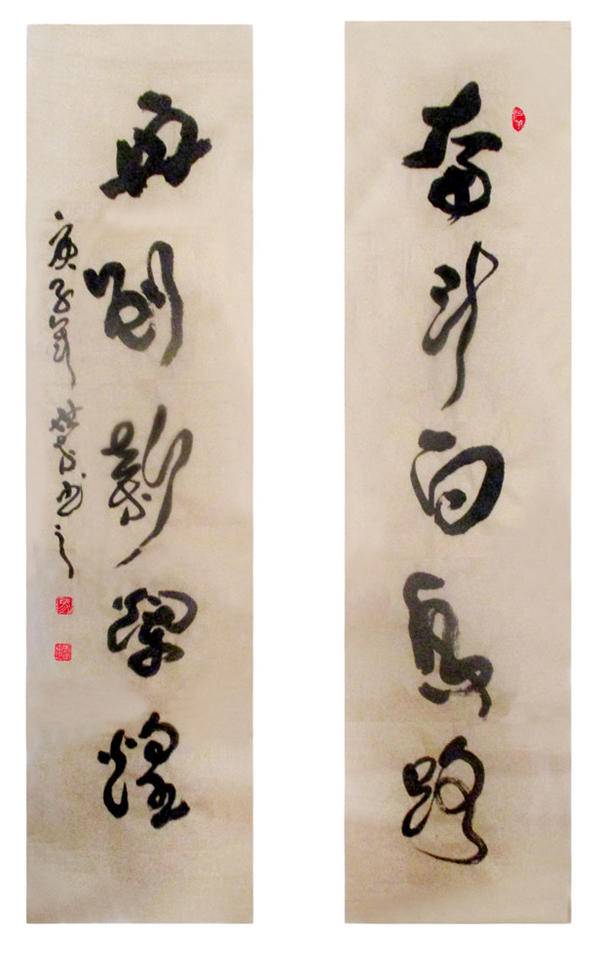 奋斗百年路
再创新辉煌
庚子年 书之